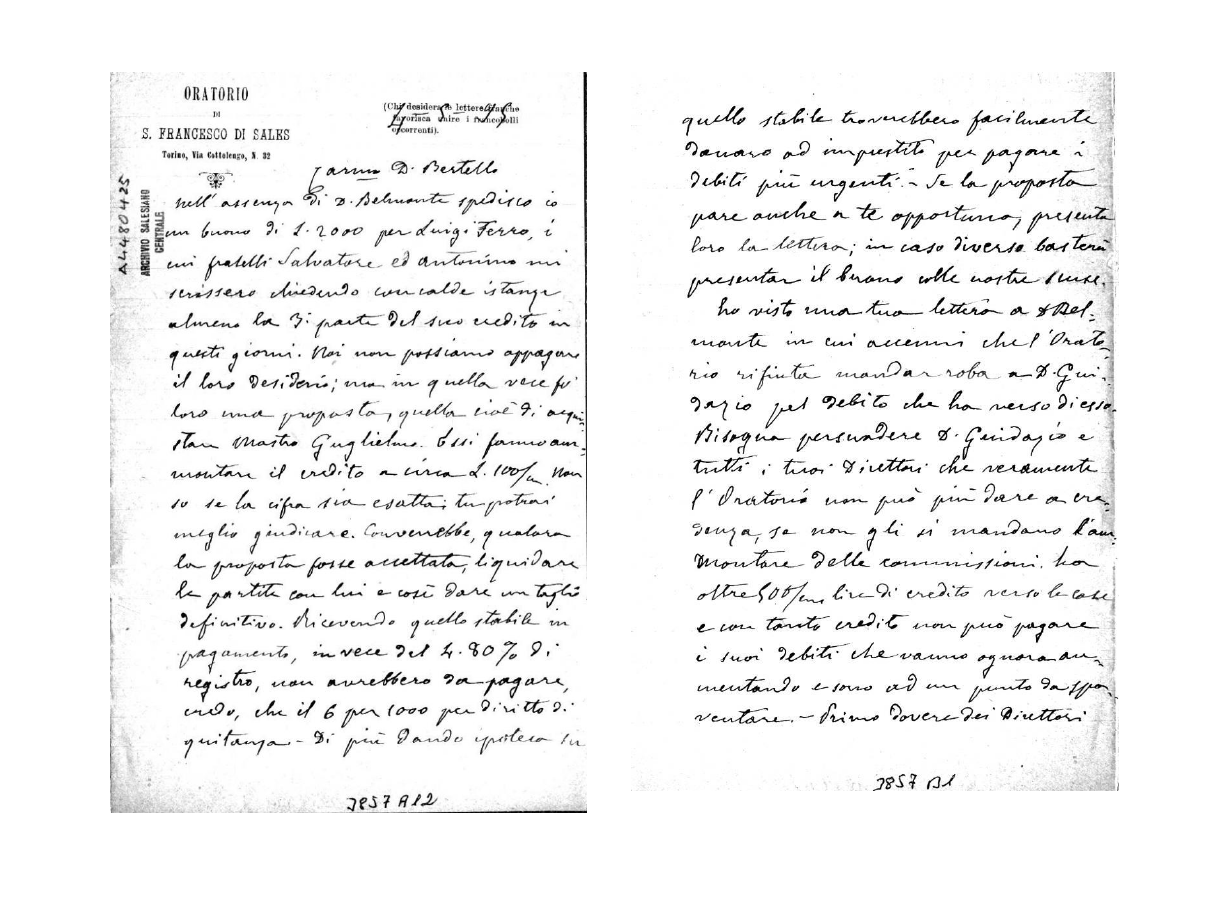 ORATORIO
DI
S. FRANCESCO DI SALES
Torino, Via Cottolengo, N. 32
(Chi desidera le lettere franche
favorisca unire i francobolli
occorrenti).
A4480425
ARCHIVIO SALESIANO
CENTRALE
Carmo D. Bertello
Nell'assenza di D. Belmonte spedisco io
un buono di L. 2000 per Luigi Ferro, i
cui fratelli Salvatore ed Antonino mi
scrissero chiedendo con calde istanze
almeno la 3ª parte del suo credito in
questi giorni. Noi non possiamo appagare
il loro desiderio; ma in quella vece fo
loro una proposta, quella cioè di acqui-
stare Mastro Guglielmo. Essi fanno am-
montare il credito a circa L. 100/m. Non
so se la cifra sia esatta; tu potrai
meglio giudicare. Converrebbe, qualora
la proposta fosse accettata, liquidare
le partite con lui e così dare un taglio
definitivo. Ricevendo quello stabile in
pagamento, invece del 4.80% di
registro, non avrebbero da pagare,
credo, che il 6 per 1000 per diritto di
quitanza. - Di più dando ipoteca su
3857 A12
quello stabile troverebbero facilmente
danaro ad imprestito per pagare i
debiti più urgenti. - Se la proposta
pare anche a te opportuna, presenta
loro la lettera; in caso diverso basterà
presentar il buono colle nostre scuse.
Ho visto una tua lettera a D. Bel-
monte in cui accenni che l'Orato-
rio rifiuta mandar roba a D. Gui-
dazio pel debito che ha verso di esso.
Bisogna persuadere D. Guidazio e
tutti i tuoi Direttori che veramente
l'Oratorio non può più dare a cre-
denza, se non gli si mandano l'am-
montare delle commissioni. Ha
oltre 500/m lire di credito verso le case
e con tanto credito non può pagare
i suoi debiti che vanno ognora au-
mentando e sono ad un punto da spa-
ventare. - Primo dovere dei Direttori
3857 B1